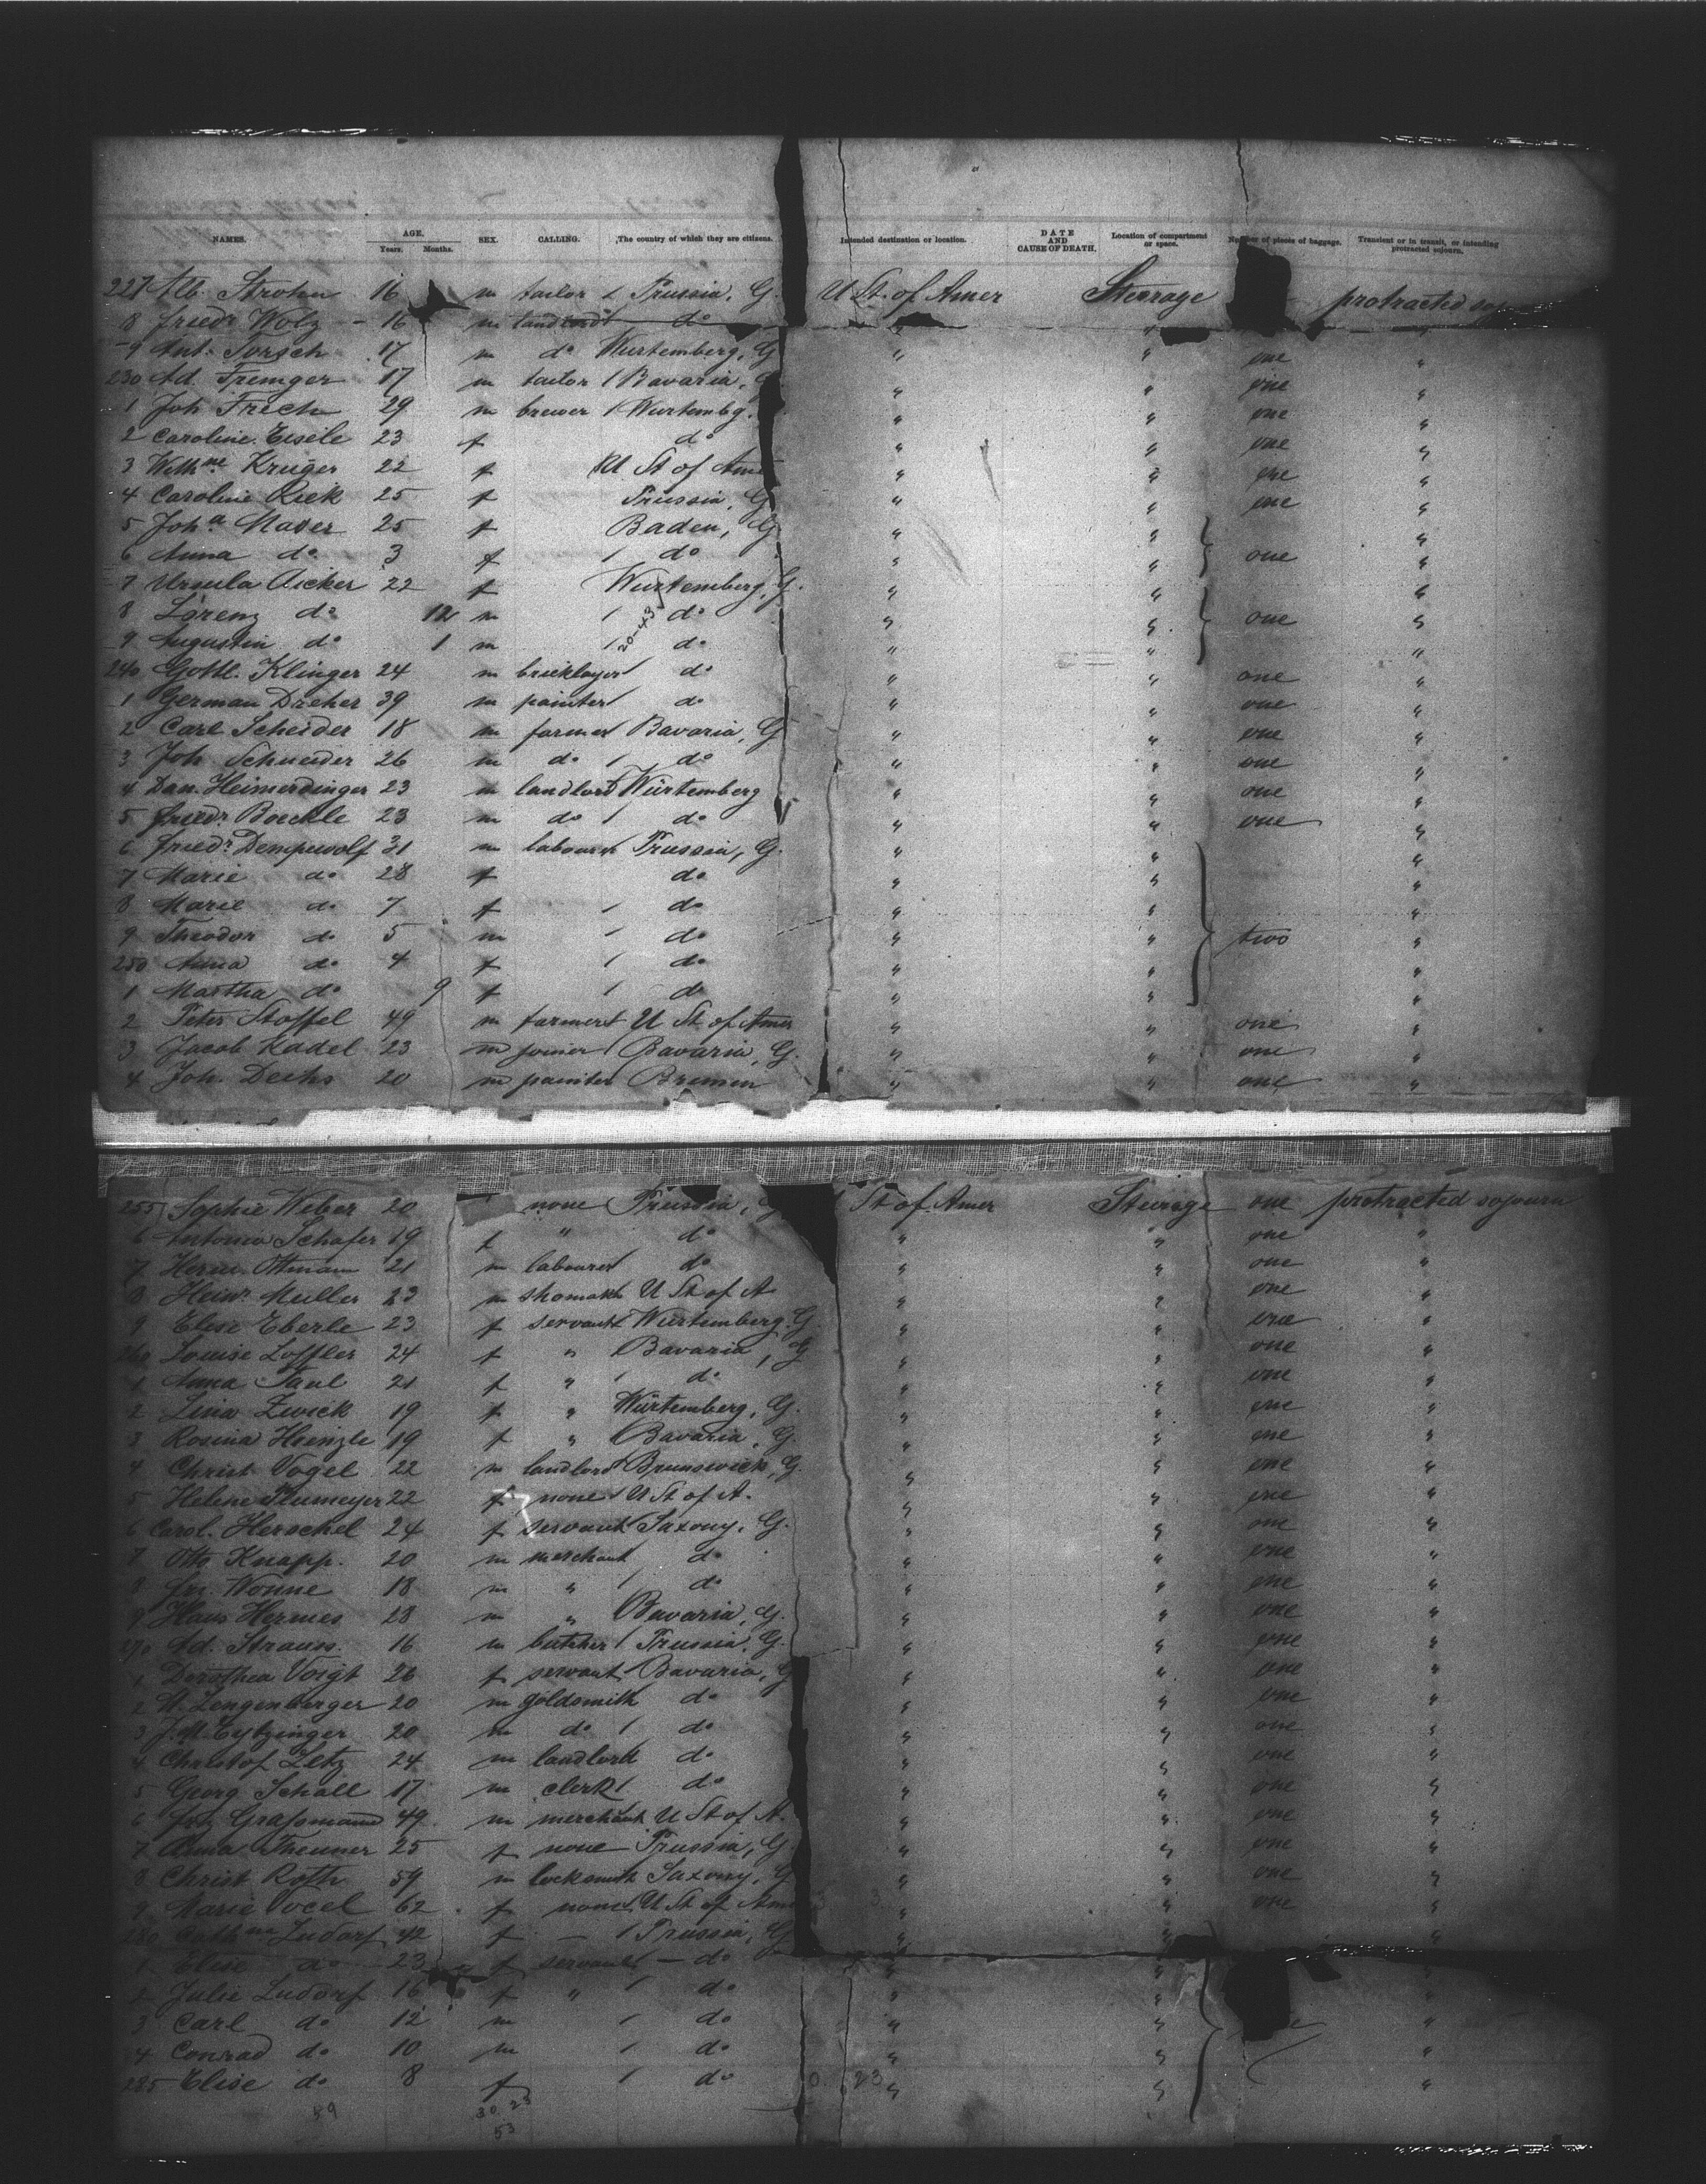 NAMES. AGE. Years. Months. SEX. CALLING. The country of which they are citizens. Intended destination or location. DATE AND CAUSE OF DEATH. Location of compartment or space. Number of pieces of baggage. Transient or in transit, or intending protracted sojourn.
227 Alb. Strohn 16 m tailor Prussia, G. U St. of Amer Steerage protracted
8 Friedr Wolz 16 m landlord do "
9 Ant. 17 m do Wurtemberg, G " " one "
230 Ad. 17 m tailor Bavaria, " " one "
1 Joh Frech 29 m brewer Wurtembg. " " one "
2 Caroline Eisele 23 f do " " one "
3 Wilhme Kruger 22 f U St of Ame " " one "
4 Caroline Rick 25 f Prussia, G " " one "
5 Joha Mader 25 f Baden, G " " "
6 Anna do 3 f do " " one "
7 Ursula Aicker 22 f Wurtemberg, G. " " "
8 Lorenz do m do " " one "
9 Augustin do 1 m 20-43 do " " "
240 Gottl. Klinger 24 m bricklayer do " " one "
1 German Dreher 39 m painter do " " one "
2 Carl Scheider 18 m farmer Bavaria, G " " one "
3 Joh. Schneider 26 m do do " " one "
4 Dan. Heimerdinger 23 m landlord Würtemberg " " one "
5 Friedr Boeckle 23 m do do " " one "
6 Friedr Dempewolf 31 m labourer Prussia, G. " " "
7 Marie do 28 f do " " "
8 Marie do 7 f do " " "
9 Theodor do 5 m do " " two "
250 Anna do 4 f do " " "
1 Martha do 9 f do " " "
2 Peter Stoffel 49 m farmer U St. of Amer " " one "
3 Jacob Kadel 23 m joiner Bavaria, G. " " one "
4 Joh. Dechs 20 m painter Bremen " " one "
255 Sophie Weber 20 none Prussia, G St of Amer Steerage one protracted sojourn
6 Antonia Schafer 19 f " do " " one "
7 Herm. Ottmann 21 m labourer do " " one "
8 Heinr Muller 23 m shomakr U St of A " " one "
9 Elise Eberle 23 f servant Wurtemberg. G " " one "
260 Louise Loffler 24 f " Bavaria, G " " one "
1 Anna Paul 21 f " do " " one "
2 Lina Zwick 19 f " Würtemberg, G. " " one "
3 Rosina Hienzle 19 f " Bavaria, G. " " one "
4 Christ Vogel 22 m landlord Brunswick, G. " " one "
5 Helene 22 f none U St of A. " " one "
6 Carol. Herschel 24 f servant Saxony, G. " " one "
7 Otto Knapp. 20 m merchant do " " one "
8 Fr. Wonne 18 m " do " " one "
9 Hans Hermes 28 m " Bavaria, G. " " one "
270 Ad. Strauss. 16 m butcher Prussia, G. " " one "
1 Dorothea Voigt 26 f servant Bavaria, G " " one "
2 W. Zengenberger 20 m goldsmith do " " one "
3 J. M. Eytzinger 20 m do do " " one "
4 Christof Zetz 24 m landlord do " " one "
5 Georg Schall 17 m clerk do " " one "
6 Graßmann 49 m merchant U St of A. " " one "
7 Anna Theuner 25 f none Prussia, G " " one "
8 Christ Roth 59 m locksmith Saxony, G " " one "
9 Marie Vocel 62 f none U St of Am 3 " " one "
280 Cathna Ludorf 42 f — Prussia, G " " "
1 Elise do 23 f servant — do " "
2 Julie Ludorf 16 f " do " " "
3 Carl do 12 m do " " "
4 Conrad do 10 m do " " "
285 Elise do 8 f do 0 23 " " "
59 30 23
53